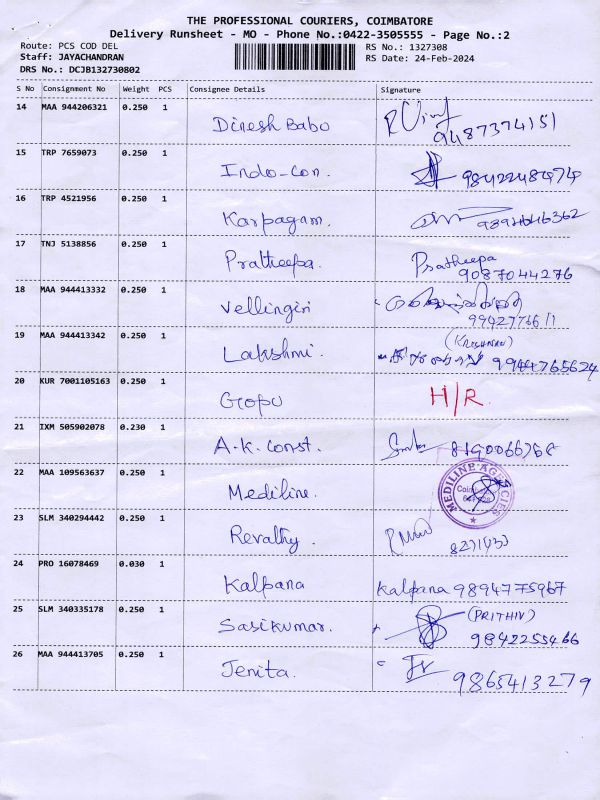 THE PROFESSIONAL COURIERS, COIMBATORE
Delivery Runsheet - MO - Phone No.:0422-3505555 - Page No.:2
Route: PCS COD DEL RS No.: 1327308
Staff: JAYACHANDRAN RS Date: 24-Feb-2024
DRS No.: DCJB132730802
S No Consignment No Weight PCS Consignee Details Signature
14 MAA 944206321 0.250 1 Dinesh Babo 9487374151
15 TRP 7659073 0.250 1 Indo-Con.
16 TRP 4521956 0.250 1 Karpagam.
17 TNJ 5138856 0.250 1 Pratheepa. Pratheepa
9087044276
18 MAA 944413332 0.250 1 Vellingiri
19 MAA 944413342 0.250 1 Lakshmi. (KRISHNAN)
9944765624
20 KUR 7001105163 0.250 1 Gopu H/R.
21 IXM 505902078 0.230 1 A.K. Const. 8190066768
22 MAA 109563637 0.250 1 Mediline. MEDILINE AGENCIES
23 SLM 340294442 0.250 1 Revathy.
24 PRO 16078469 0.030 1 Kalpana Kalpana 9894775967
25 SLM 340335178 0.250 1 Sasikumar. (PRITHIV)
9842255466
26 MAA 944413705 0.250 1 Jenita. 9865413279